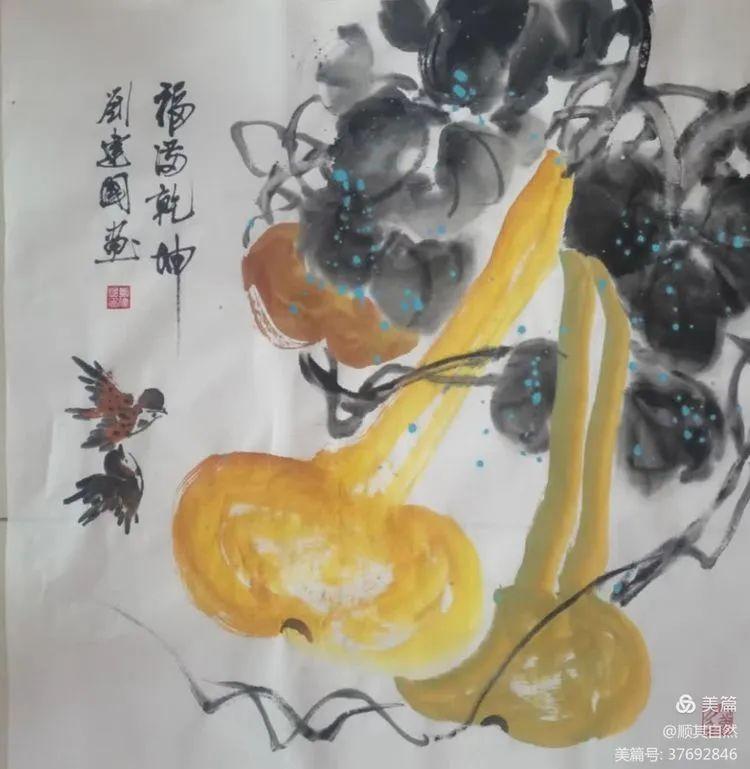 福满乾坤
劉建國画
美篇
@顺其自然
美篇号: 37692846